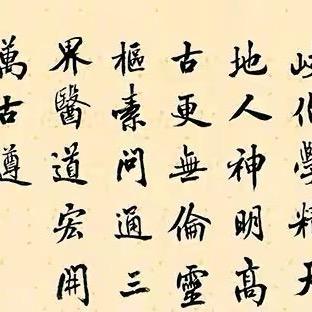 岐伯學精天
地人神明高
古更無倫靈
樞素問通三
界醫道宏開
萬古遵